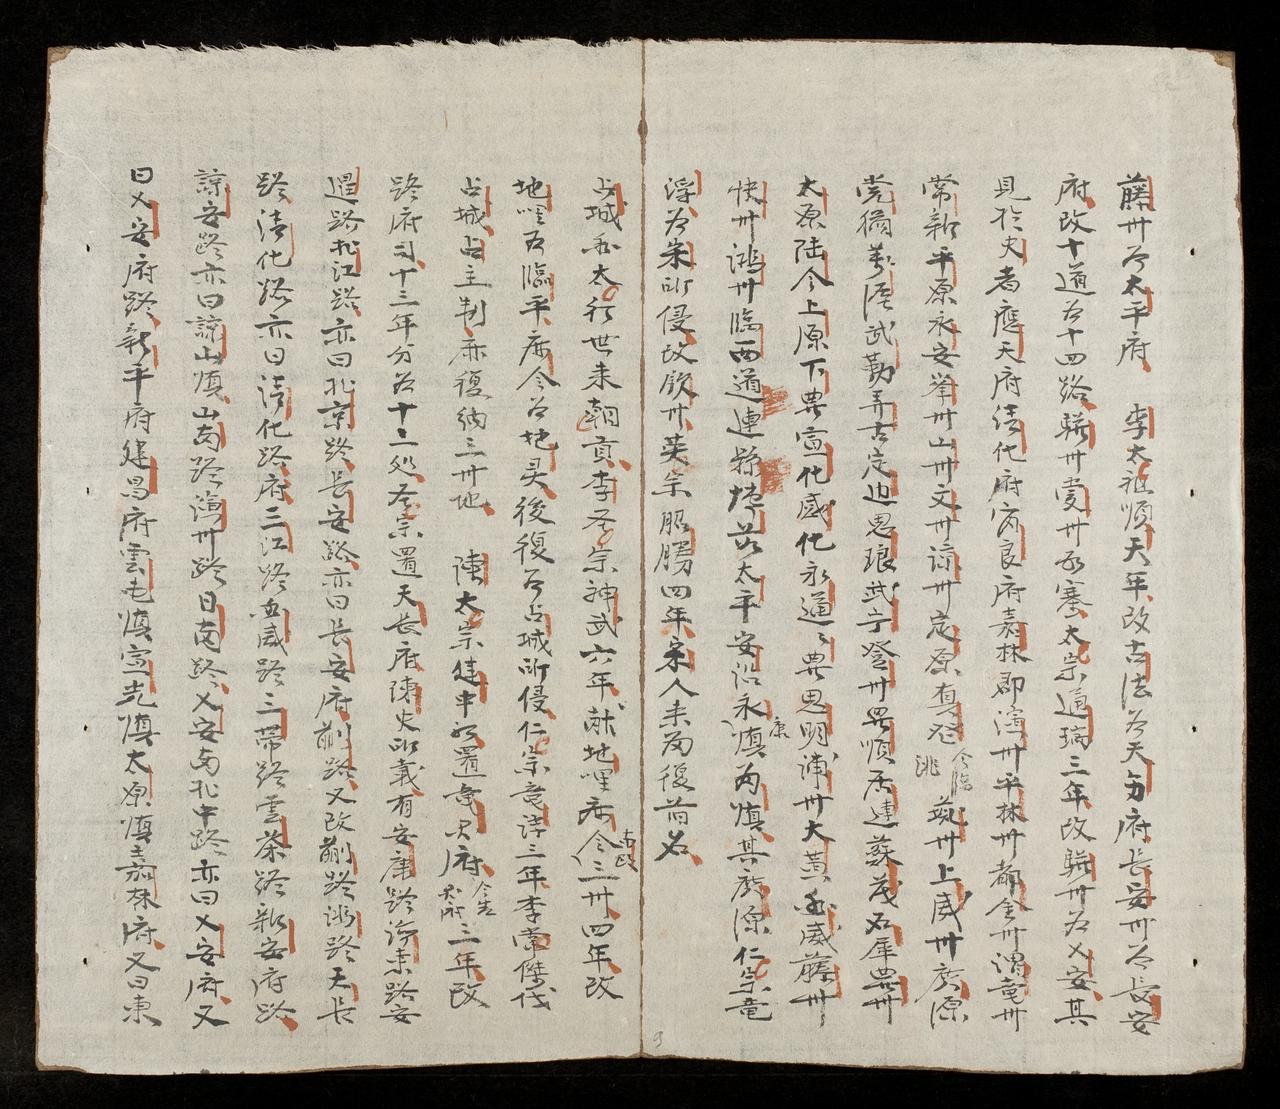 藤州为太平府　李太祖順天年改古法为天方府長安州为長安
府改十道为十四路驩州愛州为寨太宗通瑞三年改驩州为乂安其
見於史者應天府清化府富良府嘉林郡演州平林州都金州渭竜州
常新平原永安峯州山州文州諒州定原真登今臨洮㽵州上威州廣源
党猶蓦涇武勒弄古定边思琅武宁登州畀順居連蘇茂石犀畀州
太原陆令上原下畀宣化感化永通〻畀思明浦州大黄和威藤州
快州鴻州臨西道連縣埤为太平安沿永康慎为慎其廣源仁宗竜
浮为宋所侵改欣州英宗昭勝四年宋人来为復前名
占城和太行世来朝貢李圣宗神武六年献地哩布令南政三州四年改
地哩为臨平布令为地灵後復为占城所侵仁宗竜符三年李常傑伐
占城占主制麻復納三州地　陳太宗建中初置竜兴府今先兴府三年改
路府司十三年分为十二処圣宗置天長府陳史所載有安康路淌来路安
邉路北江路亦曰北京路長安路亦曰長安府蒯路又改蒯路洪路天長
路清化路亦曰清化路府三江路血威路三帶路雲茶路新安府路
諒安路亦曰諒山慎山南路演州路日南路乂安南北中路亦曰乂安府又
曰乂安府路新平府建昌府雲屯慎宣光慎太原慎嘉林府又曰東